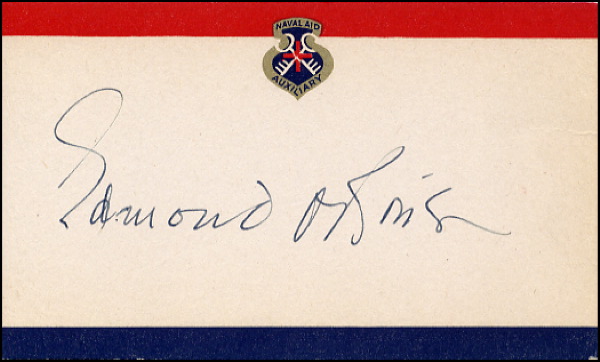 NAVAL AID
AUXILIARY
Edmond O'Brien